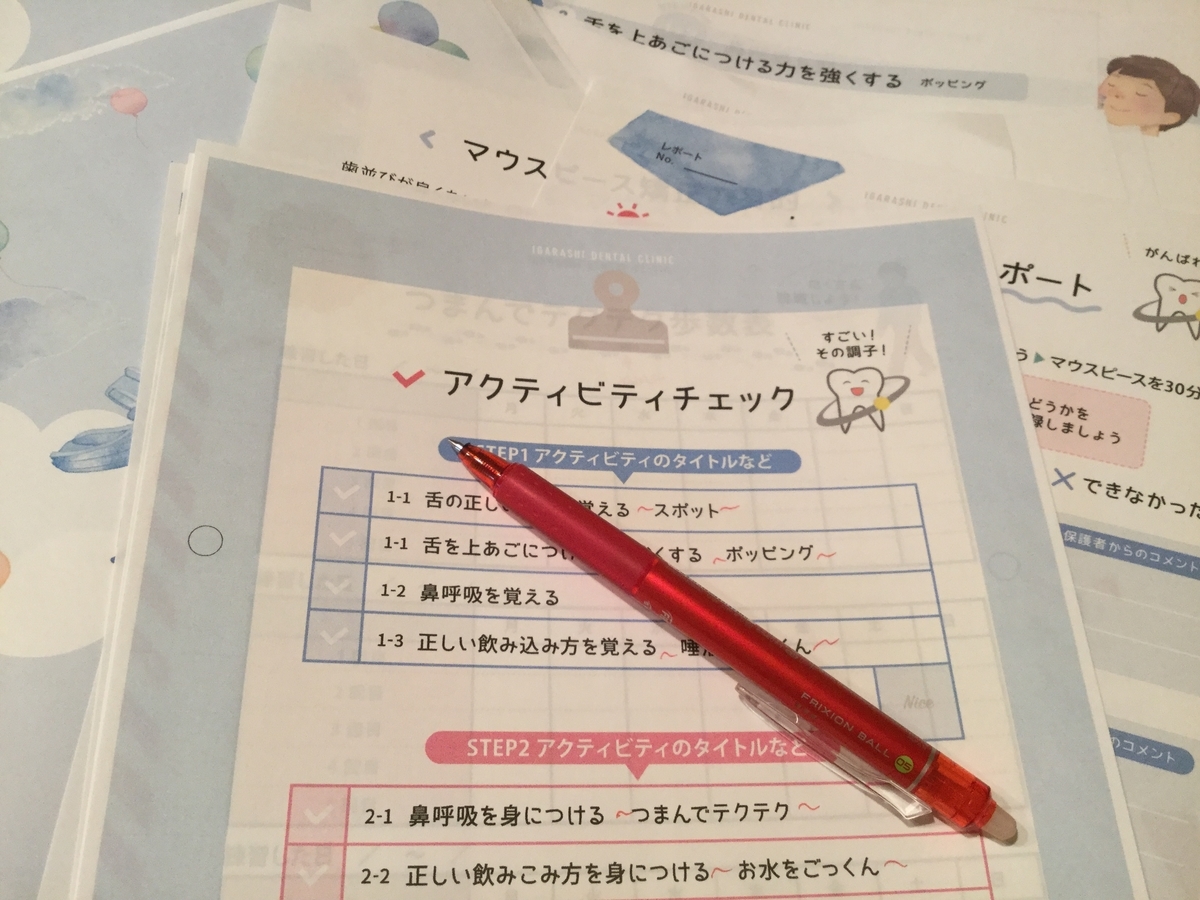 IGARASHI DENTAL CLINIC
舌を上あごにつける力を強くする ポッピング
レポート
No.
マウスピース
IGARASHI DENTAL CLINIC
ポート
がんばれ
マウスピースを30分
どうかを
録しましょう
できなかった
保護者からのコメント
のコメント
IGARASHI DENTAL CLINIC
つまんでテクテク歩数会
すごい!
その調子!
アクティビティチェック
STEP1 アクティビティのタイトルなど
1-1 舌の正し 覚える ~スポット~
1-1 舌を上あごにつけ くする ~ポッピング~
1-2 鼻呼吸を覚える
1-3 正しい飲み込み方を覚える~ 唾 くん~
Nice
STEP2 アクティビティのタイトルなど
2-1 鼻呼吸を身につける ~つまんでテクテク~
2-2 正しい飲みこみ方を身につける~ お水をごっくん~
FRIXION BALL 05